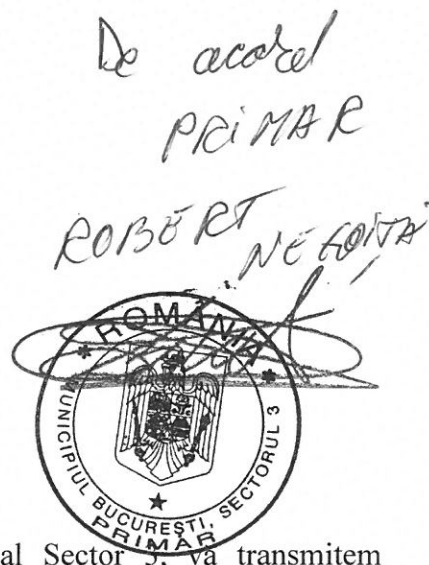 De acord
PRIMAR
ROBERT NEGOIȚĂ
* ROMÂNIA *
MUNICIPIUL BUCUREȘTI, SECTORUL 3
PRIMAR
al Sector 3, vă transmitem